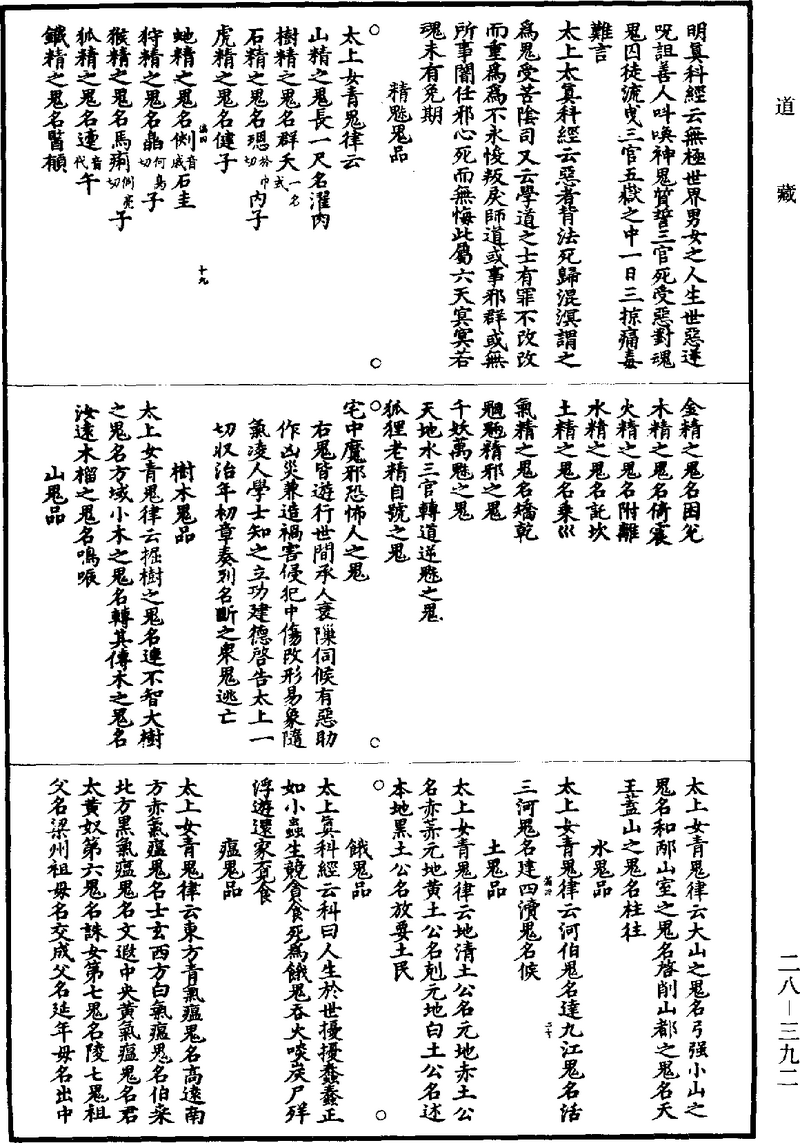 道藏
明真科經云無極世界男女之人生世惡逆
呪詛善人叫喚神鬼質誓三官死受惡對魂
鬼囚徒流曳三官五嶽之中一日三掠痛毒
難言
太上太真科經云惡者背法死歸混溟謂之
爲鬼受苦陰司又云學道之士有罪不改改
而重爲爲不永悛叛戾師道或事邪群或無
所事闇任邪心死而無悔此屬六天冥冥若
魂未有免期
精魅鬼品
太上女青鬼律云
山精之鬼長一尺名濯肉
樹精之鬼名群夭一名式
石精之鬼名璁於巾切內子
虎精之鬼名健子
虵精之鬼名側音戚石圭
狩精之鬼名晶何鳥切子
猴精之鬼名馬痢側亮切子
狐精之鬼名連音代午
鐵精之鬼名毉櫝
十九
金精之鬼名囷兊
木精之鬼名倚震
火精之鬼名附離
水精之鬼名託坎
土精之鬼名乘巛
氣精之鬼名矯乾
魍魎精邪之鬼
千妖萬魅之鬼
天地水三官轉道逆魅之鬼
狐狸老精自號之鬼
宅中魔邪恐怖人之鬼
右鬼皆遊行世間承人衰隟伺候有惡助
作凶災兼造禍害侵犯中傷改形易象隨
氣凌人學士知之立功建德啓告太上一
切收治年初章奏列名斷之衆鬼逃亡
樹木鬼品
太上女青鬼律云掘樹之鬼名連不智大樹
之鬼名方域小木之鬼名轉其傳木之鬼名
汝遠木榴之鬼名鳴噘
山鬼品
太上女青鬼律云大山之鬼名弓强小山之
鬼名和邴山室之鬼名啓削山都之鬼名天
玉蓋山之鬼名柱往
水鬼品
太上女青鬼律云河伯鬼名達九江鬼名活
三河鬼名建四瀆鬼名候
二十
土鬼品
太上女青鬼律云地清土公名元地赤土公
名赤萘元地黄土公名剋元地白土公名述
本地黑土公名放要土民
餓鬼品
太上真科經云科曰人生於世擾擾蠢蠢正
如小蟲生競貪食死爲餓鬼吞火啖炭尸殃
浮遊還家覓食
瘟鬼品
太上女青鬼律云東方青氣瘟鬼名高遠南
方赤氣瘟鬼名士玄西方白氣瘟鬼名伯桒
北方黑氣瘟鬼名文遐中央黄氣瘟鬼名君
太黄奴第六鬼名誅女第七鬼名陵七鬼祖
父名梁州祖毋名交成父名延年毋名出中
二八－三九二